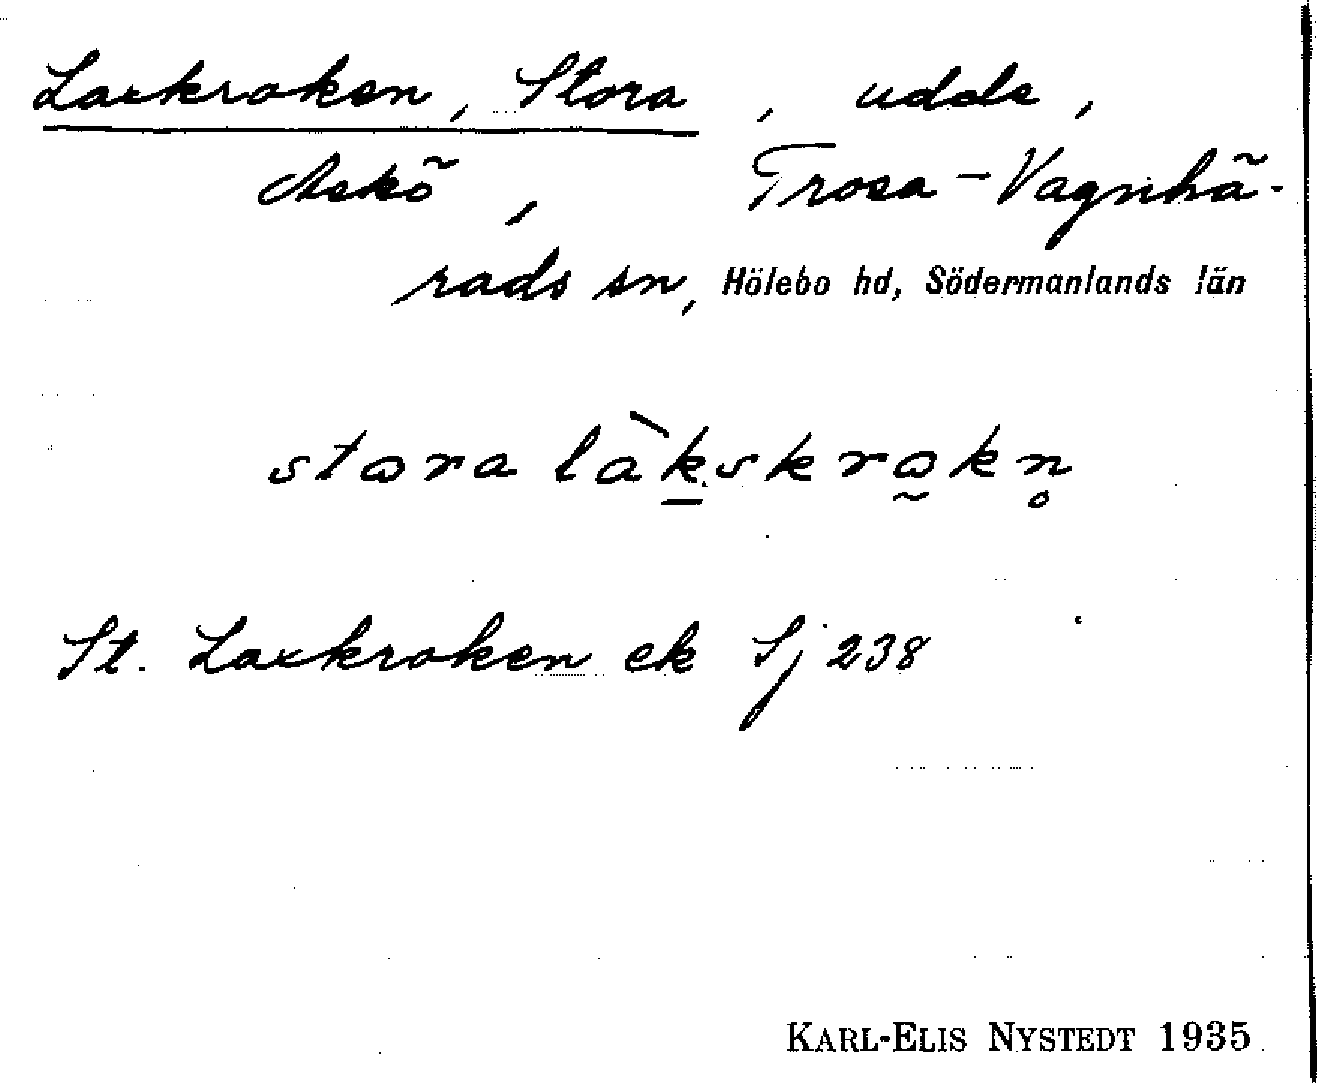 Laxkroken, Stora, udde,
Askö, Trosa-Vagnhä-
rads sn, Hölebo hd, Södermanlands län
stora làk̲skro̰kn̥
St. Laxkroken ek Sj 238
KARL-ELIS NYSTEDT 1935